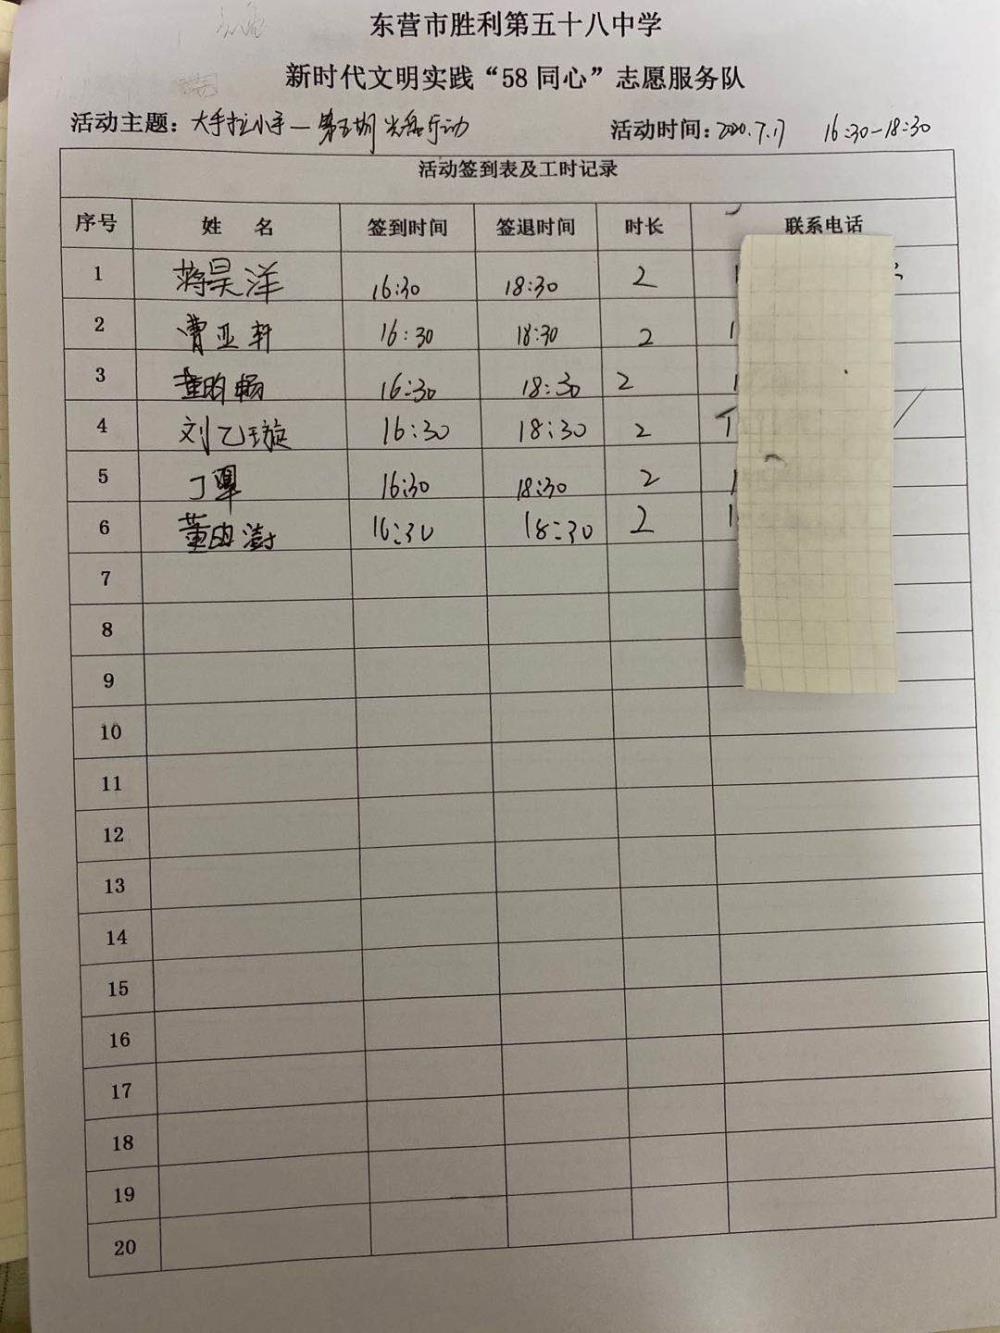 东营市胜利第五十八中学
新时代文明实践“58同心”志愿服务队
活动主题：大手拉小手—第五期光盘行动 活动时间：2020.7.17 16:30-18:30
活动签到表及工时记录
序号 姓 名 签到时间 签退时间 时长 联系电话
1 蒋昊洋 16:30 18:30 2
2 曹亚轩 16:30 18:30 2
3 董昀畅 16:30 18:30 2
4 刘乙璇 16:30 18:30 2
5 丁 16:30 18:30 2
6 董 澍 16:30 18:30 2
7
8
9
10
11
12
13
14
15
16
17
18
19
20